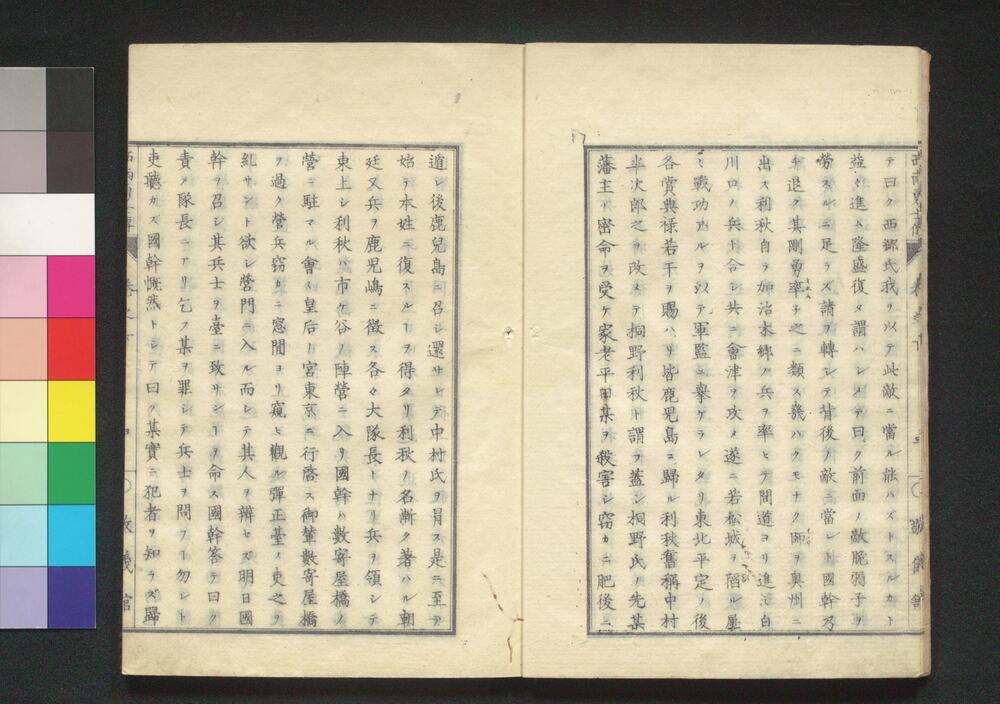 テ曰ク西郷氏我ヲ以テ此敵ニ當ル能ハズトスルカト
益々進ム隆盛復タ謂ハシメテ曰ク前面ノ敵脆弱子ヲ
勞スルニ足ラズ請フ轉シテ背後ノ敵ニ當レト國幹乃
チ退ク其剛勇率子之ニ類ス幾ハクモナク師ヲ奥州ニ
出ス利秋自ラ加治木郷ノ兵ヲ率ヒテ間道ヨリ進ミ白
川口ノ兵ト合シ共ニ會津ヲ攻メ遂ニ若松城ヲ陷ル屢
々戰功アルヲ以テ軍監ニ擧ケラレタリ東北平定ノ後
各賞典禄若干ヲ賜ハリ皆鹿児島ニ歸ル利秋舊稱中村
半次郎之ヲ改メテ桐野利秋ト謂フ蓋シ桐野氏ノ先某
藩主ノ密命ヲ受ケ家老平田某ヲ殺害シ窃カニ肥後ニ
道レ後鹿兒島ニ召シ還サレテ中村氏ヲ冐ス是ニ至テ
始テ本姓ニ復スルーヲ得タリ利秋ノ名漸ク著ハル朝
廷又兵ヲ鹿児嶋ニ徴ス各々大隊長トナリ兵ヲ領シテ
東上シ利秋ハ市ケ谷ノ陣營ニ入リ國幹ハ數寄屋橋ノ
營ニ駐マル會々皇后ノ宮東京ニ行啓ス御輦數寄屋橋
ヲ過ク營兵窃カニ窓間ヨリ窺ヒ觀ル彈正臺ノ吏之ヲ
糺サント欲シ營門ニ入ル而シテ其人ヲ辨セズ明日國
幹ヲ召シ其兵士ヲ臺ニ致サシーヲ命ス國幹答テ曰ク
責メ隊長ニアリ乞フ某ヲ罪シテ兵士ヲ問フー勿レト
吏聽カズ國幹慨然トシテ曰ク某實ニ犯者ヲ知ラズ歸